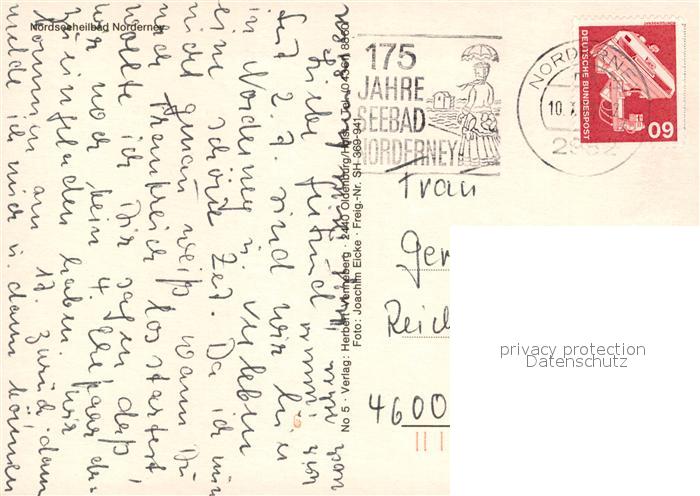 Nordseeheilbad Norderney
175
JAHRE
SEEBAD
NORDERNEY
NORDERN
10.7.
2982
DEUTSCHE BUNDESPOST
60
Seit 2. 7. sind wir hier
in Norderney u. verleben
eine schöne Zeit. Da ich nun
nicht genau weiß wann Du
nach Frankreich los startest,
wollte ich Dir sagen daß
wir noch kein 4. Ehepaar da-
zu eingeladen haben. Wir
kommen am 17. zurück. dann
melde ich mich u. dann können
No 5 · Verlag: Herbert Venneberg · 2440 Oldenburg/Holst. · Tel. (0 43 61) 8360
Foto: Joachim Elcke · Freig.-Nr. SH 369-941
Frau
Ger
Reich
4600
privacy protection
Datenschutz